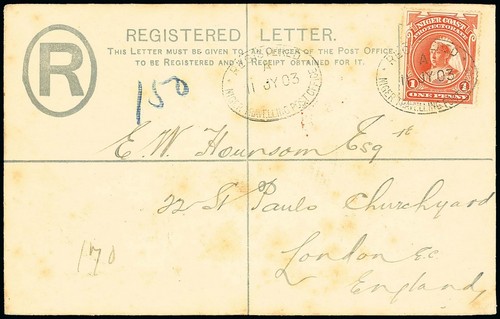 REGISTERED LETTER.
THIS LETTER MUST BE GIVEN TO AN OFFICER OF THE POST OFFICE
TO BE REGISTERED AND A RECEIPT OBTAINED FOR IT.
R
150
NIGER COAST
PROTECTORATE
1 1
ONE PENNY
A
11 JY 03
NIGER TRAVELLING POST OFFICE
A
JY 03
NIGER
E. W. Hounsom Esqr
22 St Pauls Churchyard
London E.C.
England
170